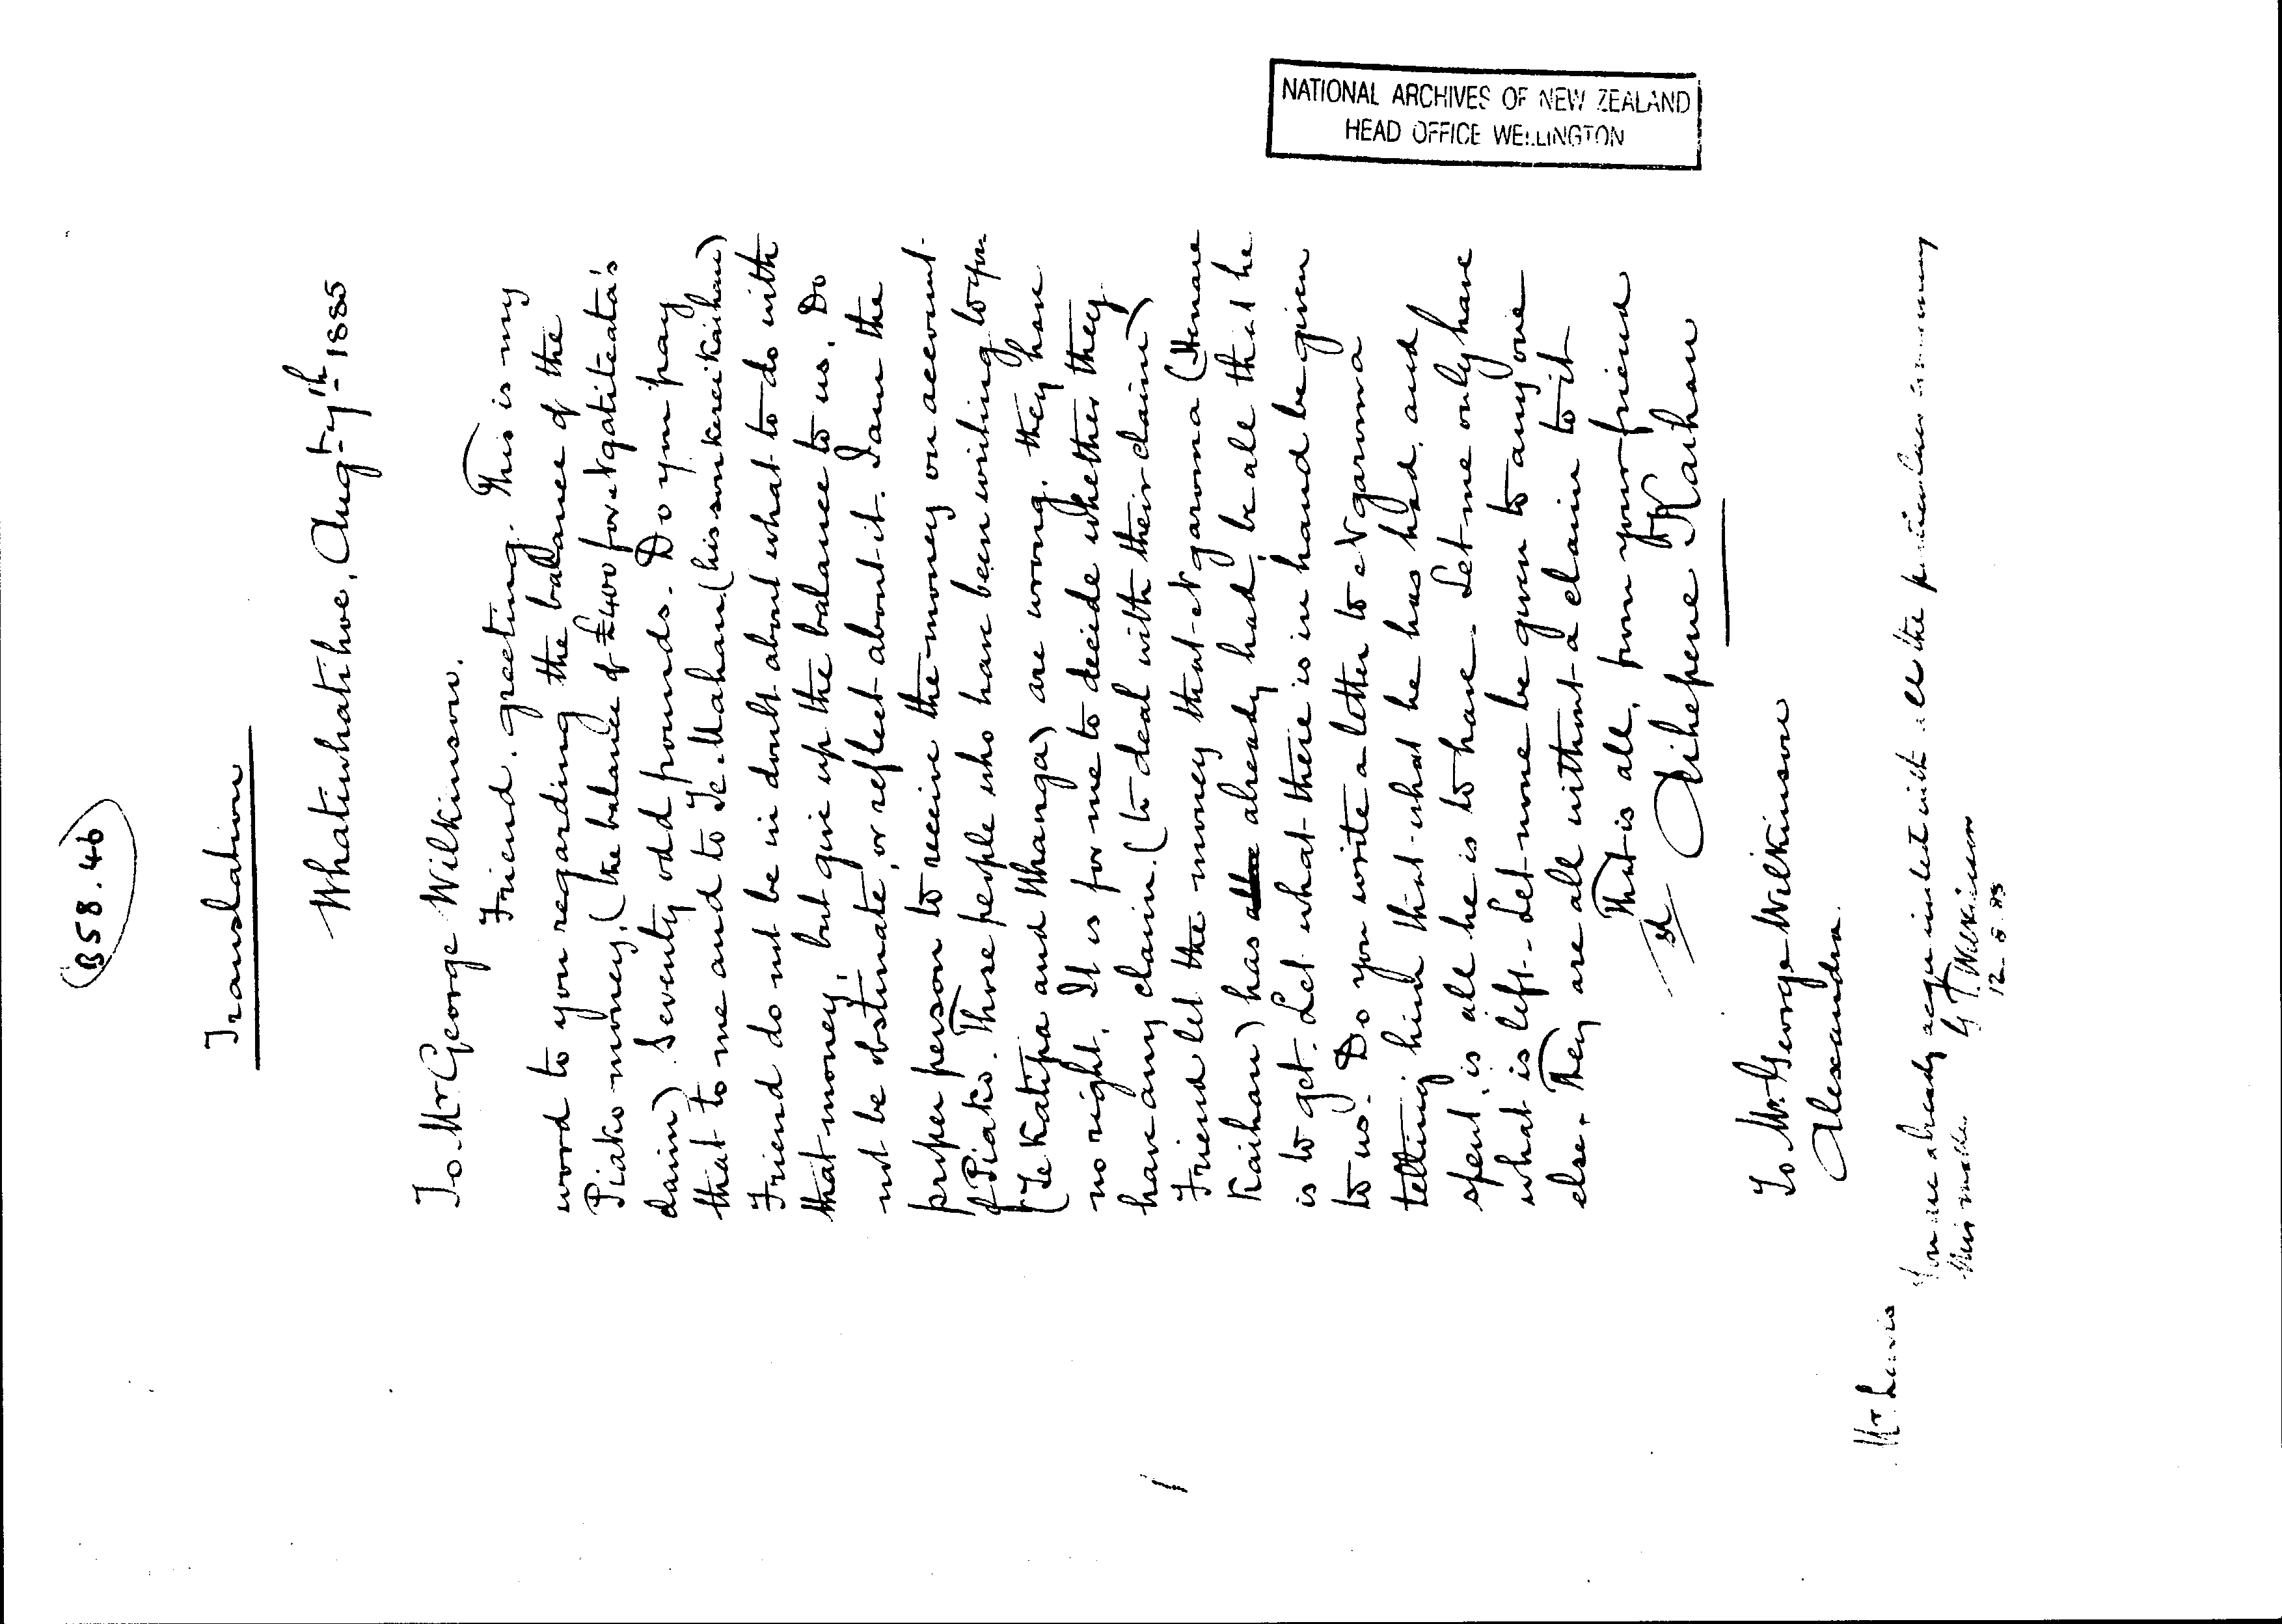 B58.46
Translation
Whatiwhatihoe, Augt 7th 1885
To Mr George Wilkinson.
Friend, greeting. This is my
word to you regarding the balance of the
Piako money, (the balance of £400 for Ngatiteata's
claim) seventy odd pounds. Do you pay
that to me and to Te Mahau (his son Kerei Kaihau)
Friend do not be in doubt about what to do with
that money, but give up the balance to us. Do
not be obstinate, or reflect about it. I am the
proper person to receive the money on account
of Piako. Those people who have been writing to you
(Te Katipa and Whanga) are wrong. they have
no right. It is for me to decide whether they
have any claim. (to deal with their claim)
Friend let the money that Ngarorona (Henare
Kaihau) has already had, be all that he
is to get. Let what there is in hand be given
to us. Do you write a letter to Ngarorona
telling him that what he has had, and
spent, is all he is to have. Let me only have
what is left. Let none be given to any one
else. They are all without a claim to it
That is all, from your friend
Aihepene Kaihau
To Mr. George Wilkinson
Alexandra.
Mr. Lewis
You are already acquainted with all the particulars
this matter G T. Wilkinson
12.8.85
NATIONAL ARCHIVES OF NEW ZEALAND
HEAD OFFICE WELLINGTON